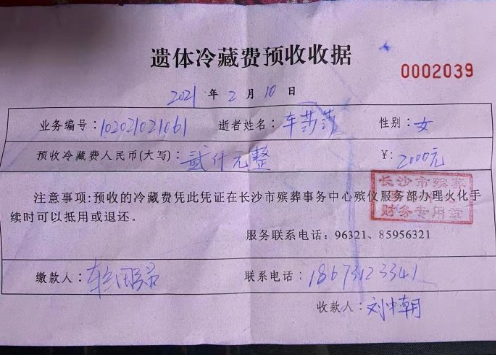 遗体冷藏费预收收据
0002039
2021 年 2 月 10 日
业务编号: 102021021061 逝者姓名: 车莎莎 性别: 女
预收冷藏费人民币(大写): 贰仟元整 ¥: 2000元
注意事项:预收的冷藏费凭此凭证在长沙市殡葬事务中心殡仪服务部办理火化手
续时可以抵用或退还。
长沙市殡葬
财务专用章
服务联系电话: 96321、85956321
缴款人: 联系电话: 18673123341
收款人: 刘中朝